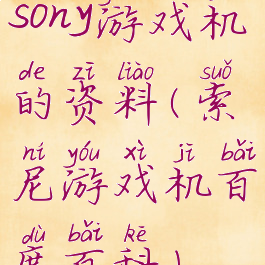 sony游戏机
de zī liào suǒ
的资料(索
ní yóu xì jī bǎi
尼游戏机百
dù bǎi kē
度百科)